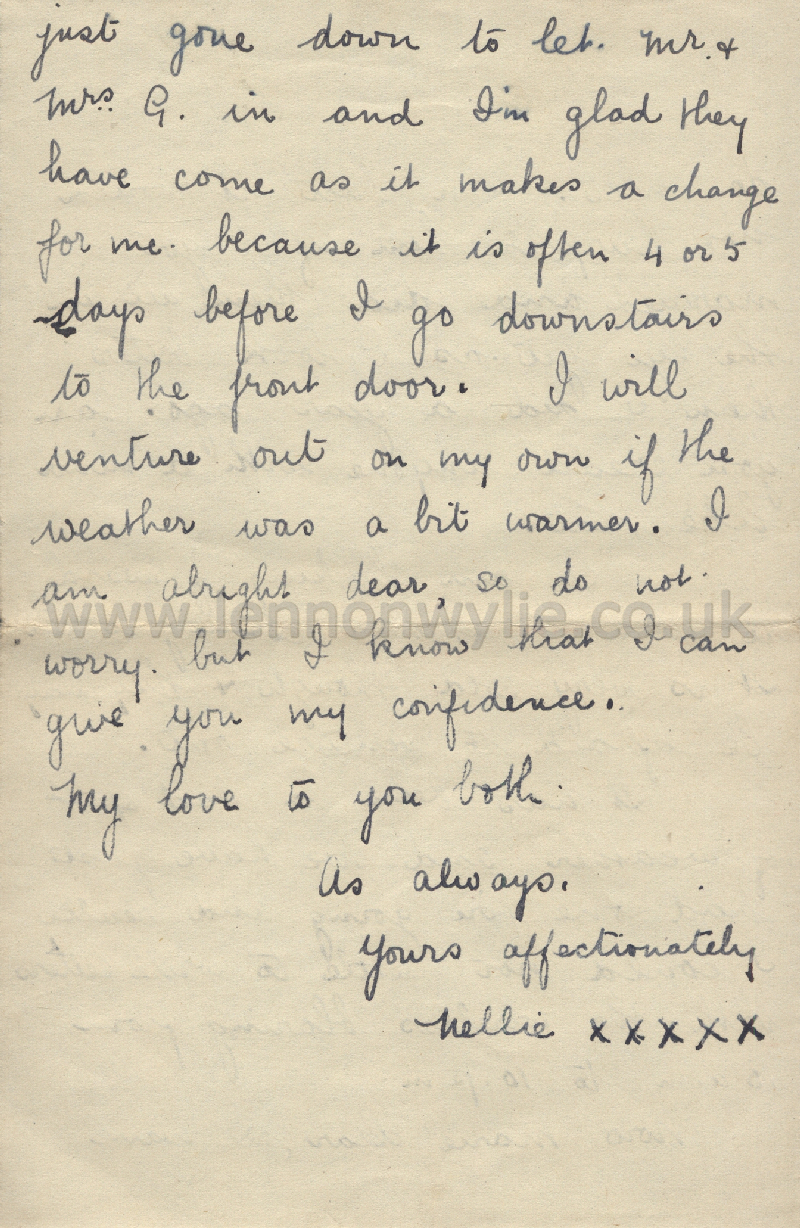 just gone down to let. Mr. &
Mrs. G. in and I'm glad they
have come as it makes a change
for me. because it is often 4 or 5
days before I go downstairs
to the front door. I will
venture out on my own if the
weather was a bit warmer. I
am alright dear, so do not.
www.lennonwylie.co.uk
worry. but I know that I can
give you my confidence.
My love to you both.
As always.
Yours affectionately
Nellie x x x x x